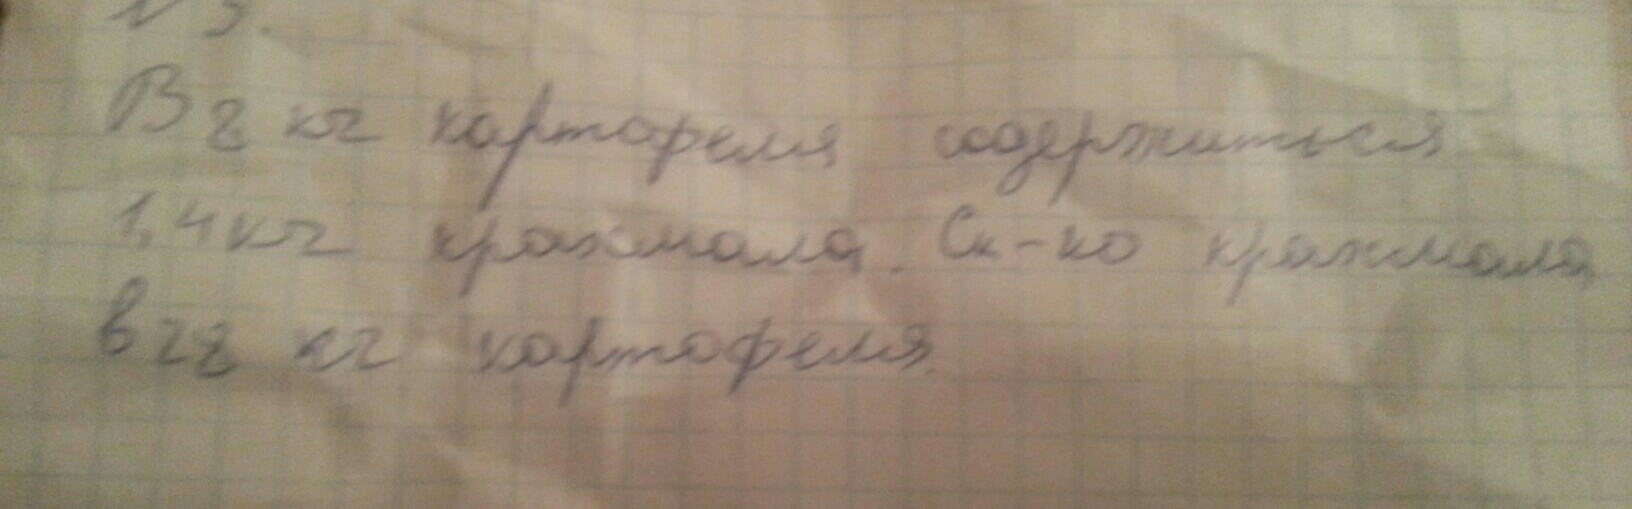 В 8 кг картофеля содержиться
1,4 кг крахмала. Ск-ко крахмала
в 28 кг картофеля.